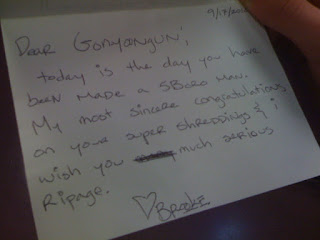 9/17/20
Dear Gonyongun,
today is the day you have
been made a 5Boro man.
My most sincere congratulations
on your super shreddings & i
wish you much serious
Ripage.
♡Brooke